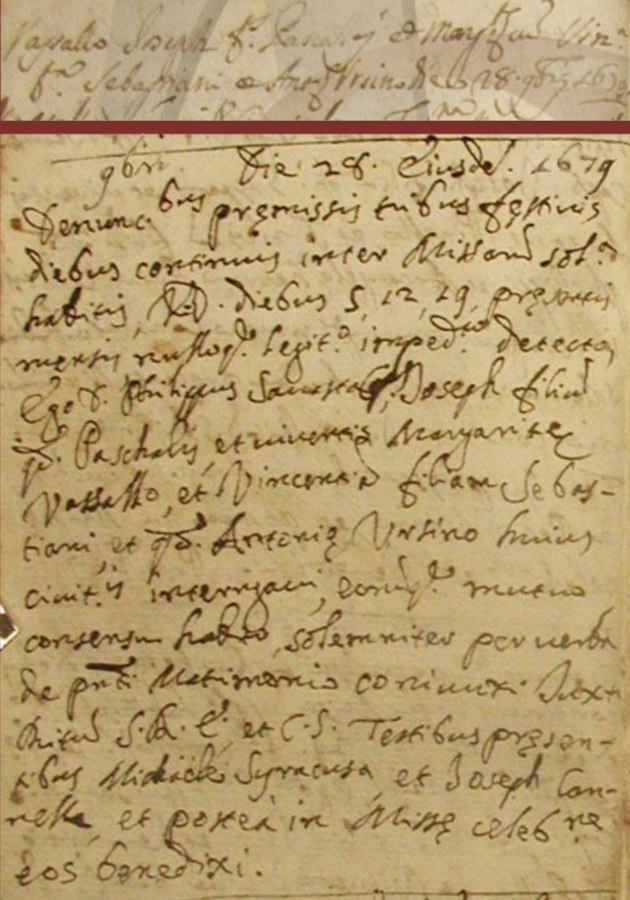 Vassallo Joseph f.s Pascalis et Marg.tæ cum Vin.a
f.a Sebastiani et Ant.æ Ursino die 28 9bris 1679
9bris Die 28. Eiusdẽ. 1679
Denunc.bus premissis tribus festiuis
diebus continuis inter Missarũ sol.a
habitis, V.D. diebus 5, 12, 19, presentis
mensis nulloq. legit.o imped.to detecto,
Ego D. Philippus Joseph filiũ
q. Paschalis, et uiuentis Margarite
Vassallo, et Vincentiã filiam Sebas-
tiani, et qd. Antonie Ursino huius
ciuit.is interrogaui, eorũq. mutuo
consensu habito, solemniter per uerba
de pnti Matrimonio coniunxi Juxta
Ritũ S.R.E. et C.S. Testibus presen-
tibus Michaele Syracusa, et Joseph Can-
nella, et postea in Misse celeb.ne
eos benedixi.